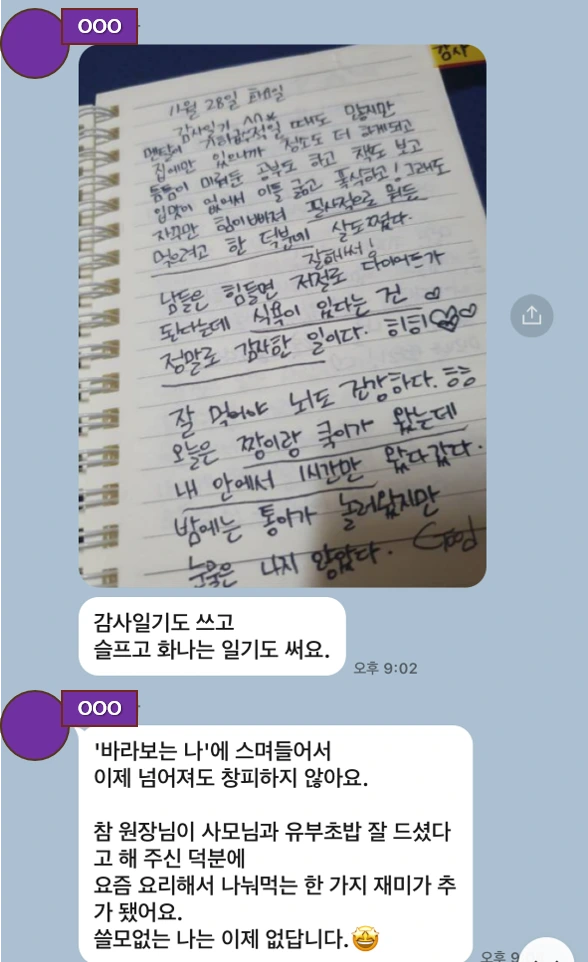 OOO
감사
11월 28일 화요일
감사일기 ^^*
멘탈이 지하급수적일 때도 많지만
집에만 있으니까 청소도 더 하게되고
틈틈이 미뤄둔 공부도 하고 책도 보고
입맛이 없어서 이틀 굶고 폭식하고! 그래도
자꾸만 힘이빠져 필사적으로 뭐든
먹으려고 한 덕분에 살도쪘다.
잘했써!
남들은 힘들면 저절로 다이어트가
된다는데 식욕이 있다는 건
정말로 감사한 일이다. 히히
잘 먹어야 뇌도 건강하다. ㅎㅎ
오늘은 짱이랑 쿡이가 왔는데
내 안에서 1시간만 왔다갔다.
밤에는 통아가 놀러왔지만
눈물은 나지 않았다.
감사일기도 쓰고
슬프고 화나는 일기도 써요.
오후 9:02
OOO
'바라보는 나'에 스며들어서
이제 넘어져도 창피하지 않아요.
참 원장님이 사모님과 유부초밥 잘 드셨다
고 해 주신 덕분에
요즘 요리해서 나눠먹는 한 가지 재미가 추
가 됐어요.
쓸모없는 나는 이제 없답니다.🤩
오후 9